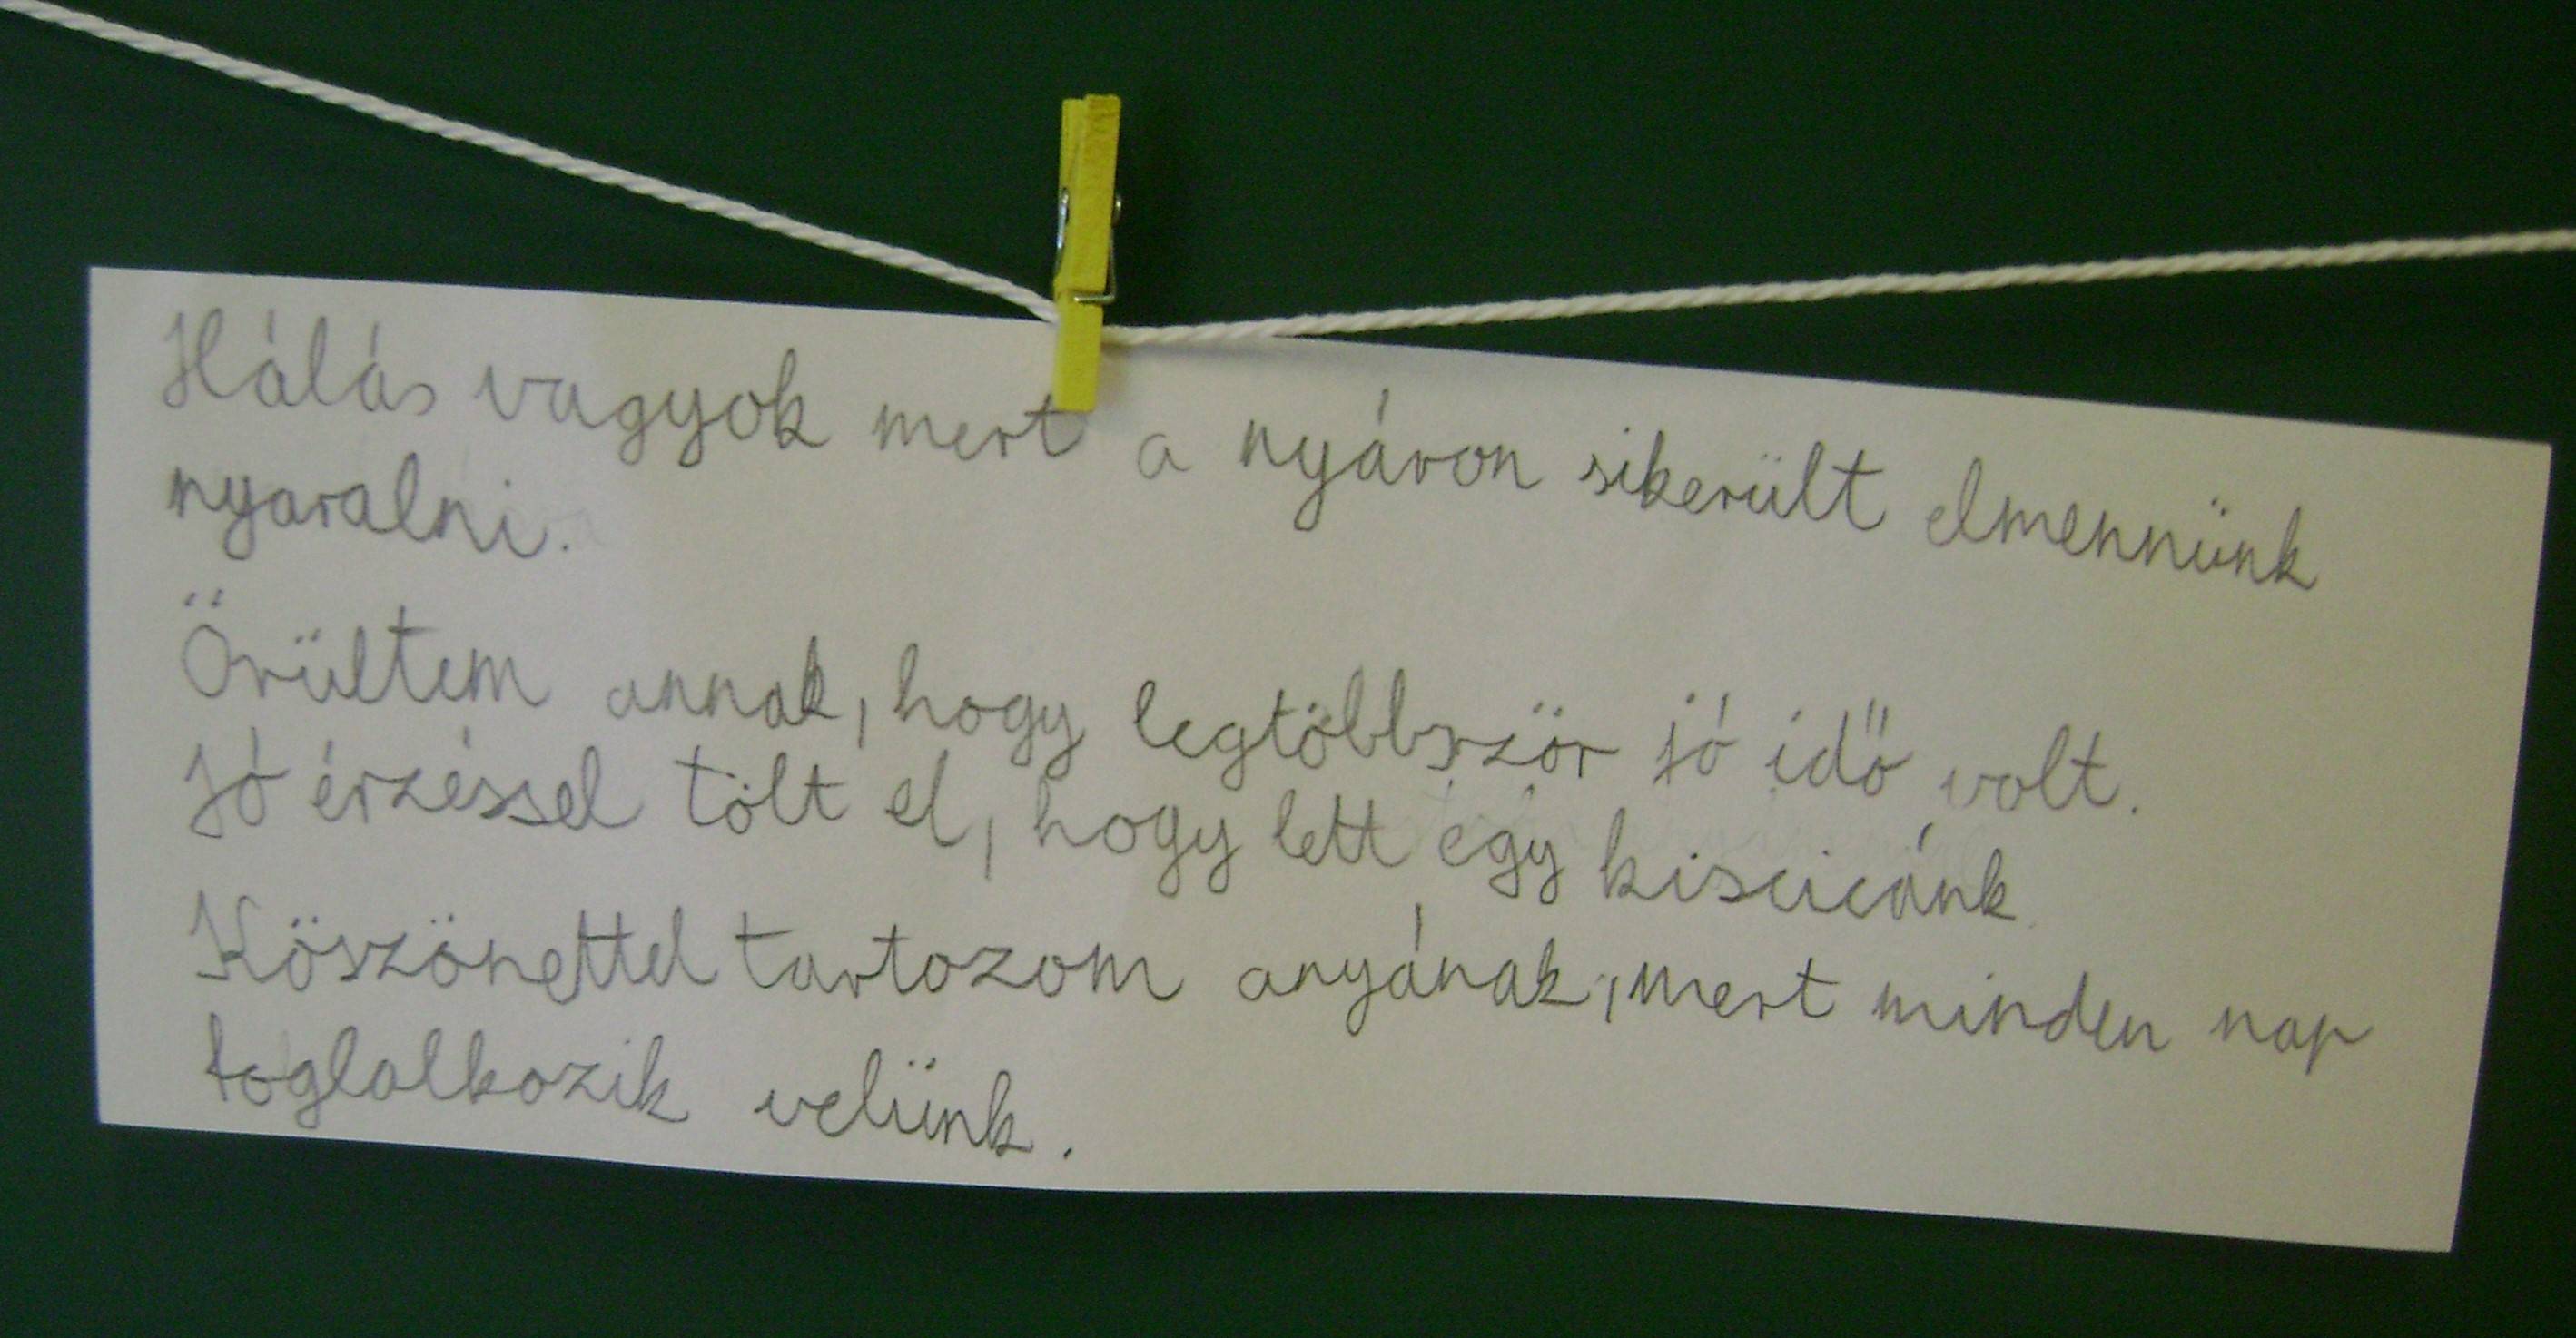 Hálás vagyok mert a nyáron sikerült elmennünk
nyaralni.
Örültem annak, hogy legtöbbször jó idő volt.
Jó érzéssel tölt el, hogy lett egy kiscicánk.
Köszönettel tartozom anyának, mert minden nap
foglalkozik velünk.